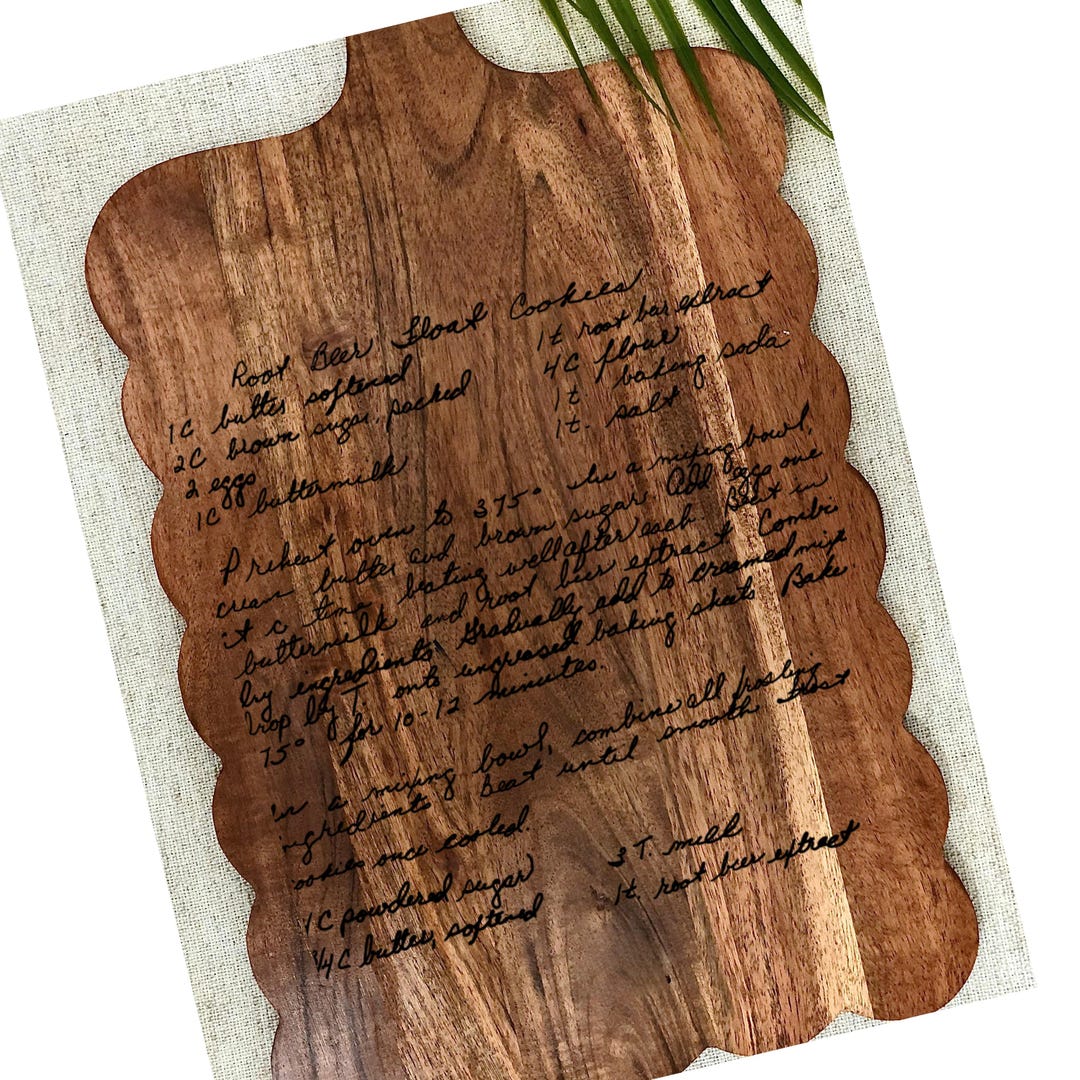 Root Beer Float Cookies
1C butter softened
2C brown sugar, packed
2 eggs
1C buttermilk
1t root beer extract
4C flour
1t baking soda
1t. salt
Preheat oven to 375° In a mixing bowl,
cream butter and brown sugar Add eggs one
at a time beating well after each Beat in
buttermilk and root beer extract Combi
dry ingredients Gradually add to creamed mix
drop by T onto ungreased baking sheets Bake
75° for 10-12 minutes.
in a mixing bowl, combine all frosting
ingredients Beat until smooth Frost
ookies once cooled.
1C powdered sugar
1/4C butter, softened
3T. milk
1t. root beer extract